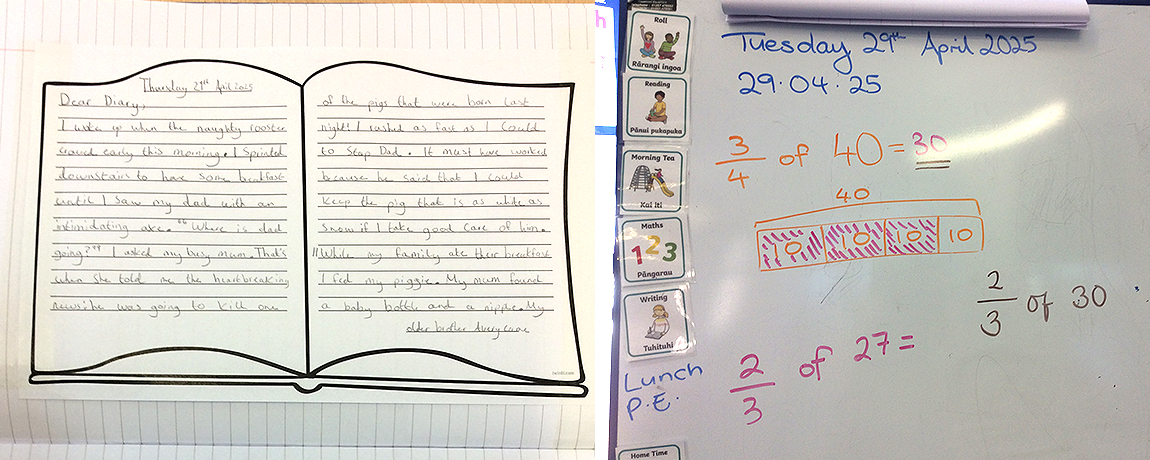 Thursday 29th April 2025
Dear Diary,
I woke up when the naughty rooster
crowed early this morning. I Sprinted
downstairs to have some breakfast
until I saw my dad with an
intimidating axe. "Where is dad
going?" I asked my busy mum. That's
when she told me the heartbreaking
news: he was going to kill one
of the pigs that were born last
night! I rushed as fast as I could
to Stop Dad. It must have worked
because he said that I could
keep the pig that is as white as
snow if I take good care of him.
//While my family ate their breakfast
I fed my piggie. My mum found
a baby bottle and a nipple. My
older brother Avery came
twinkl.com
Roll
Rārangi ingoa
Reading
Pānui pukapuka
Morning Tea
Kai iti
Maths
1 2 3
Pāngarau
Writing
Tuhituhi
Lunch
P.E.
Home Time
h
Tuesday 29th April 2025
29.04.25
3/4 of 40 = 30
40
10 10 10 10
2/3 of 30
2/3 of 27 =